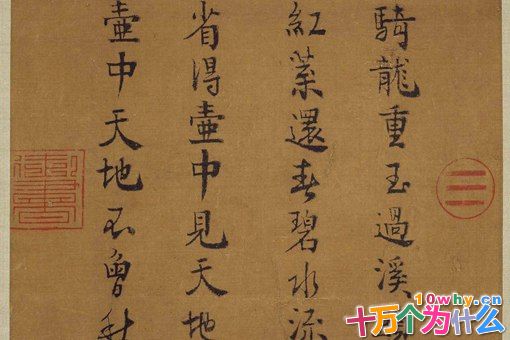 騎龍重玉過溪
紅葉還春碧水流
省得壺中見天地
壺中天地不曾秋
10why.cn
十万个为什么